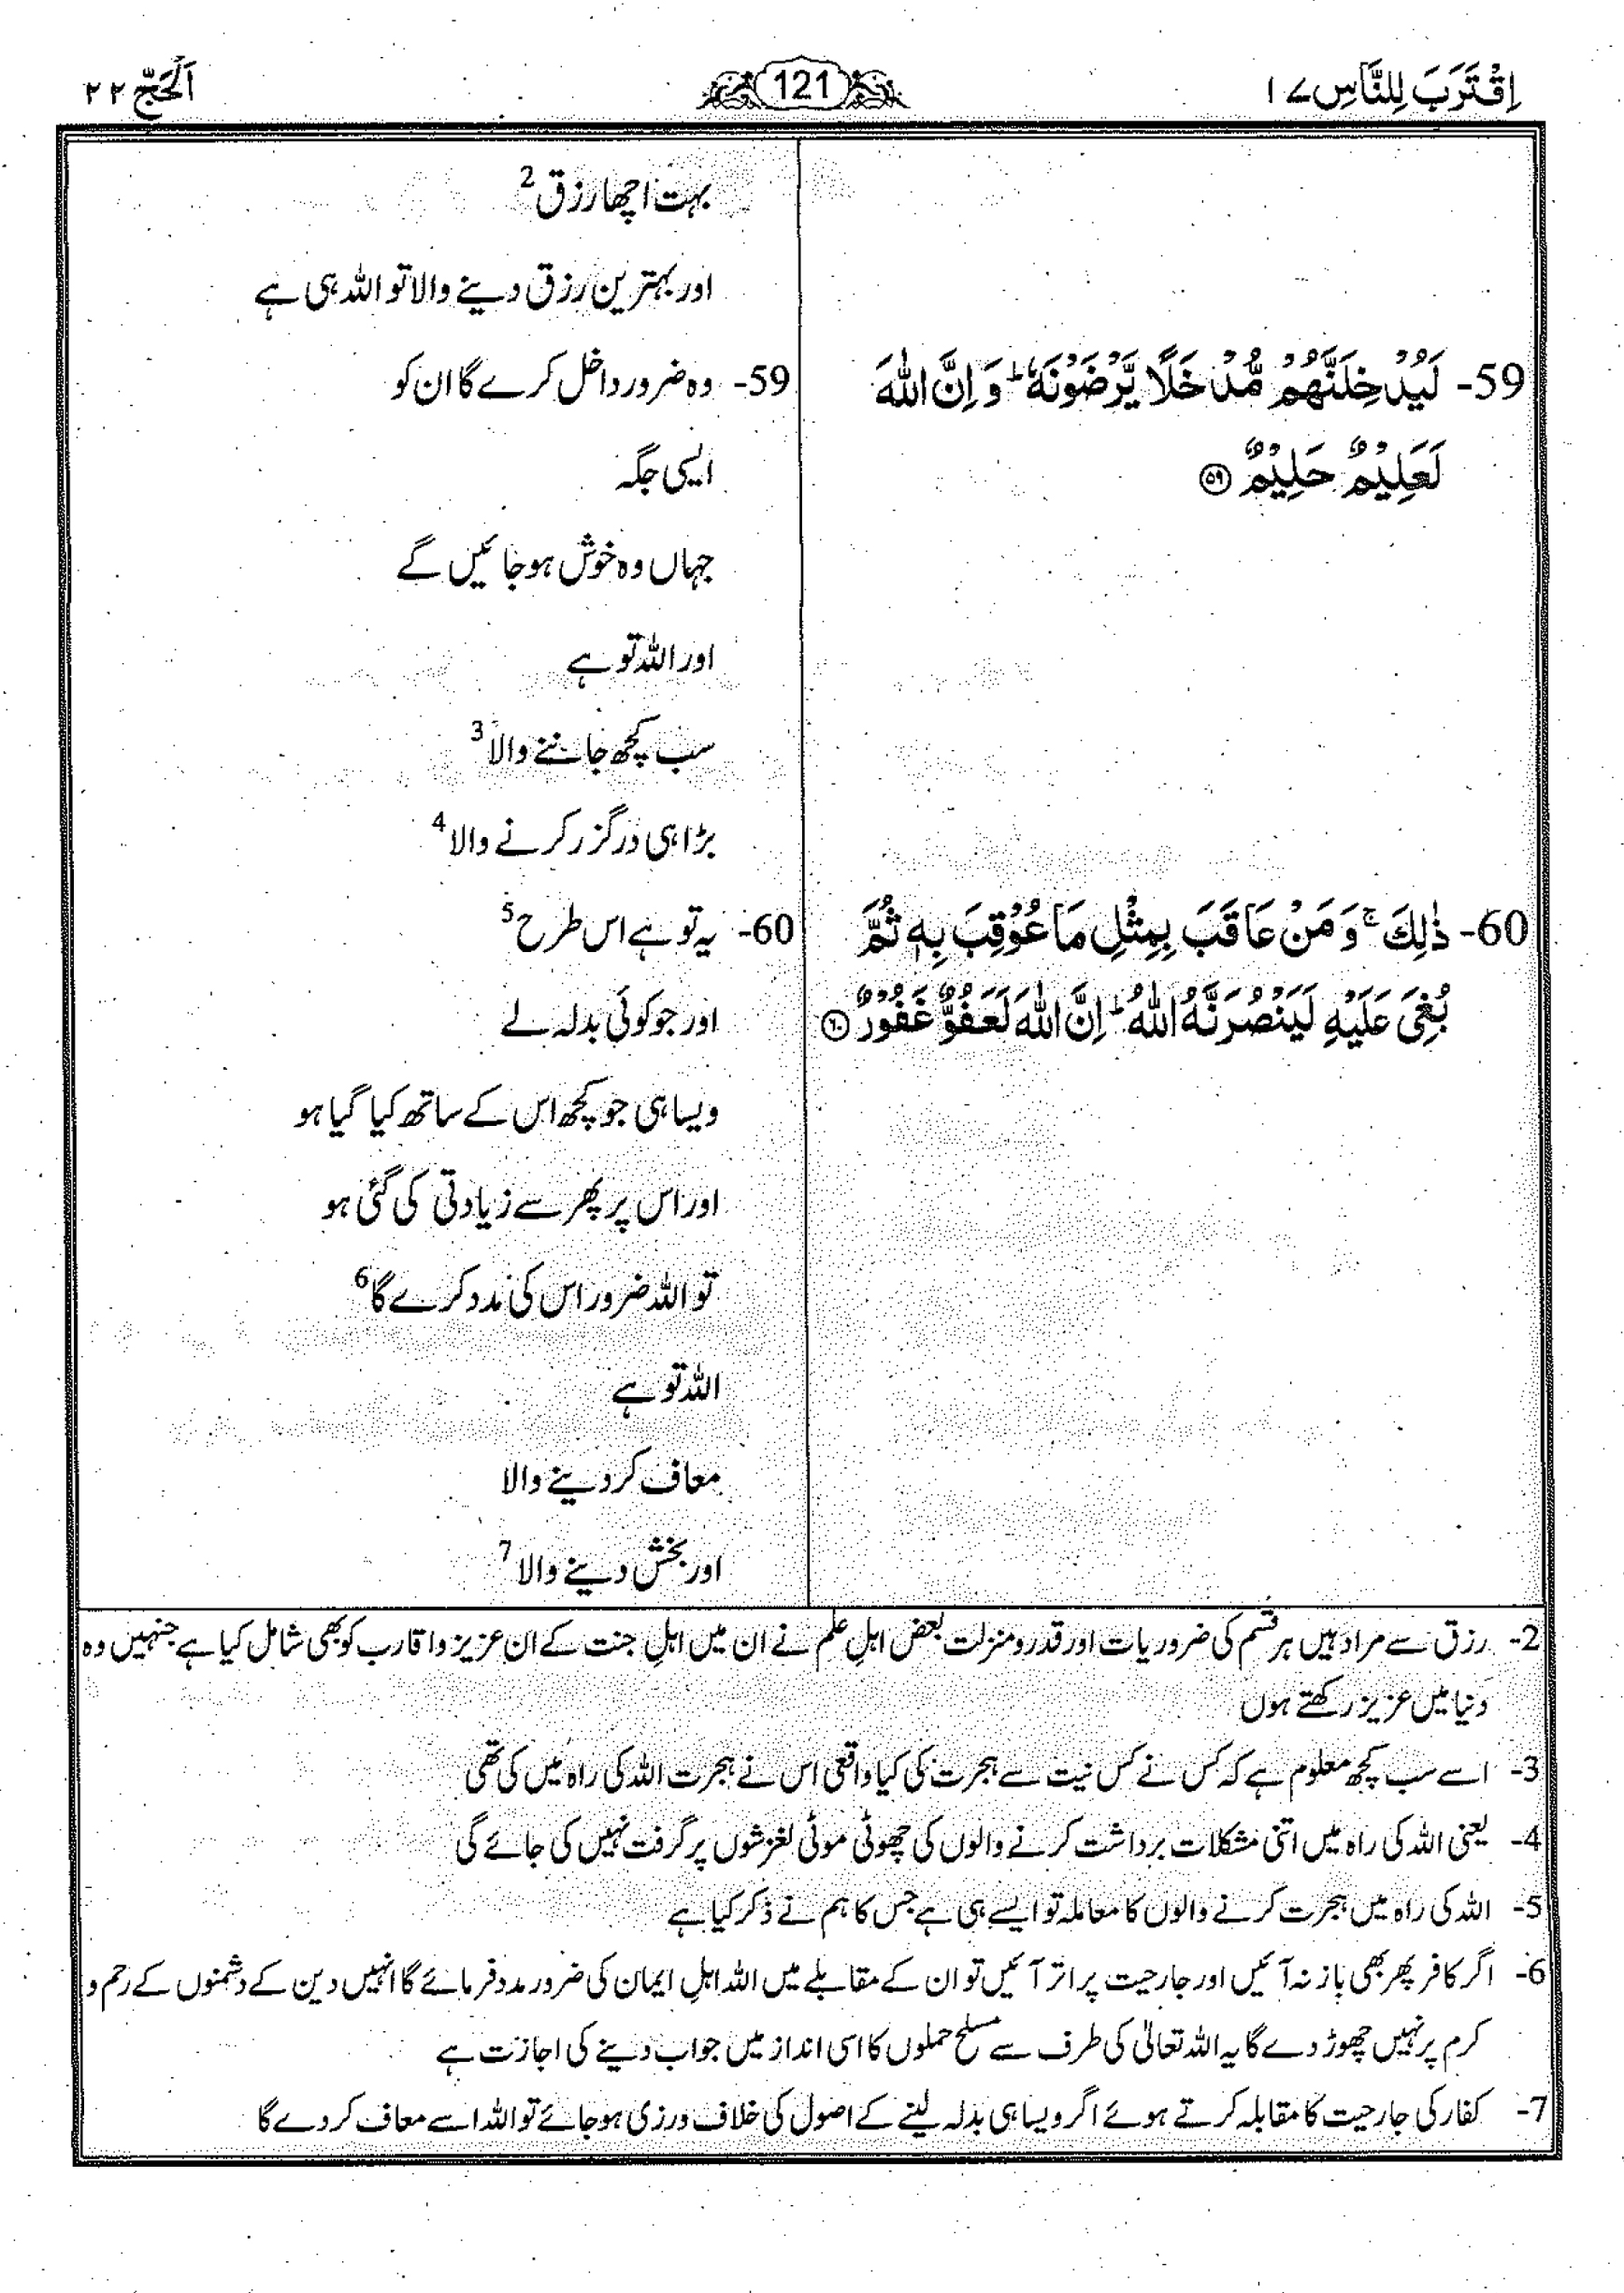 اِقْتَرَبَ لِلنَّاسِ ۱۷
121
اَلْحَجّ ۲۲
59- لَيُدْخِلَنَّهُمْ مُّدْخَلًا يَّرْضَوْنَهٗ ؕ وَ اِنَّ اللّٰهَ
لَعَلِيْمٌ حَلِيْمٌ ۝۵۹
60- ذٰلِكَ ۚ وَ مَنْ عَاقَبَ بِمِثْلِ مَا عُوْقِبَ بِهٖ ثُمَّ
بُغِيَ عَلَيْهِ لَيَنْصُرَنَّهُ اللّٰهُ ؕ اِنَّ اللّٰهَ لَعَفُوٌّ غَفُوْرٌ ۝۶۰
بہت اچھا رزق 2
اور بہترین رزق دینے والا تو اللہ ہی ہے
59- وہ ضرور داخل کرے گا ان کو
ایسی جگہ
جہاں وہ خوش ہو جائیں گے
اور اللہ تو ہے
سب کچھ جاننے والا 3
بڑا ہی درگزر کرنے والا 4
60- یہ تو ہے اس طرح 5
اور جو کوئی بدلہ لے
ویسا ہی جو کچھ اس کے ساتھ کیا گیا ہو
اور اس پر پھر سے زیادتی کی گئی ہو
تو اللہ ضرور اس کی مدد کرے گا 6
اللہ تو ہے
معاف کر دینے والا
اور بخش دینے والا 7
2- رزق سے مراد ہیں ہر قسم کی ضروریات اور قدر و منزلت بعض اہلِ علم نے ان میں اہلِ جنت کے ان عزیز و اقارب کو بھی شامل کیا ہے جنہیں وہ
دنیا میں عزیز رکھتے ہوں
3- اسے سب کچھ معلوم ہے کہ کس نے کس نیت سے ہجرت کی کیا واقعی اس نے ہجرت اللہ کی راہ میں کی تھی
4- یعنی اللہ کی راہ میں اتنی مشکلات برداشت کرنے والوں کی چھوٹی موٹی لغزشوں پر گرفت نہیں کی جائے گی
5- اللہ کی راہ میں ہجرت کرنے والوں کا معاملہ تو ایسے ہی ہے جس کا ہم نے ذکر کیا ہے
6- اگر کافر پھر بھی باز نہ آئیں اور جارحیت پر اتر آئیں تو ان کے مقابلے میں اللہ اہلِ ایمان کی ضرور مدد فرمائے گا انہیں دین کے دشمنوں کے رحم و
کرم پر نہیں چھوڑ دے گا یہ اللہ تعالیٰ کی طرف سے مسلح حملوں کا اسی انداز میں جواب دینے کی اجازت ہے
7- کفار کی جارحیت کا مقابلہ کرتے ہوئے اگر ویسا ہی بدلہ لینے کے اصول کی خلاف ورزی ہو جائے تو اللہ اسے معاف کر دے گا